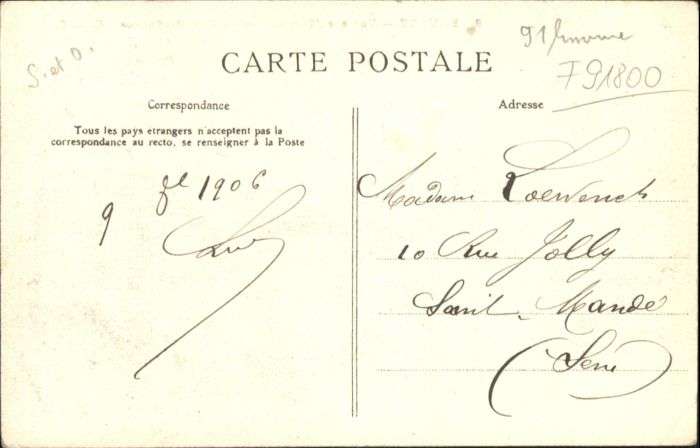 S. et O.
91 Brunoy
F 91800
CARTE POSTALE
Correspondance
Adresse
Tous les pays etrangers n'acceptent pas la
correspondance au recto, se renseigner à la Poste
9 fl 1906
Madame Loewench
10 Rue Jolly
Saint. Mandé
(Seine)